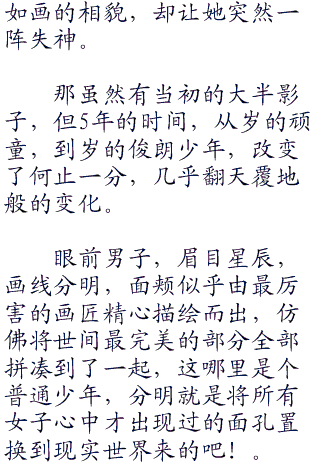 如画的相貌，却让她突然一
阵失神。
那虽然有当初的大半影
子，但5年的时间，从岁的顽
童，到岁的俊朗少年，改变
了何止一分，几乎翻天覆地
般的变化。
眼前男子，眉目星辰，
画线分明，面颊似乎由最厉
害的画匠精心描绘而出，仿
佛将世间最完美的部分全部
拼凑到了一起，这哪里是个
普通少年，分明就是将所有
女子心中才出现过的面孔置
换到现实世界来的吧！。